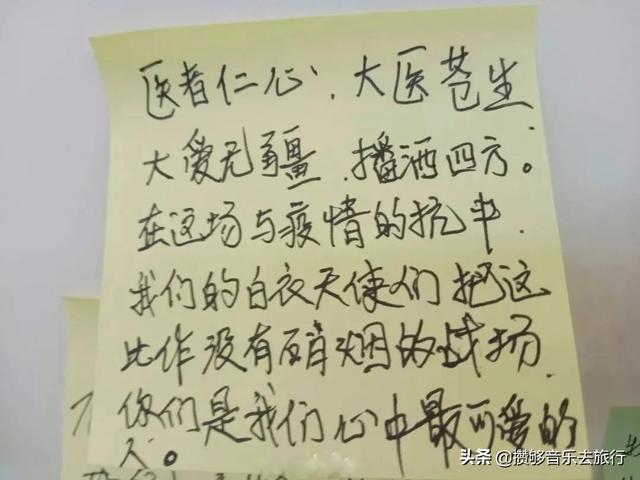 医者仁心，大医苍生
大爱无疆，播洒四方。
在这场与疫情的抗中，
我们的白衣天使们把这
比作没有硝烟的战场，
你们是我们心中最可爱的
人。
头条 @攒够音乐去旅行